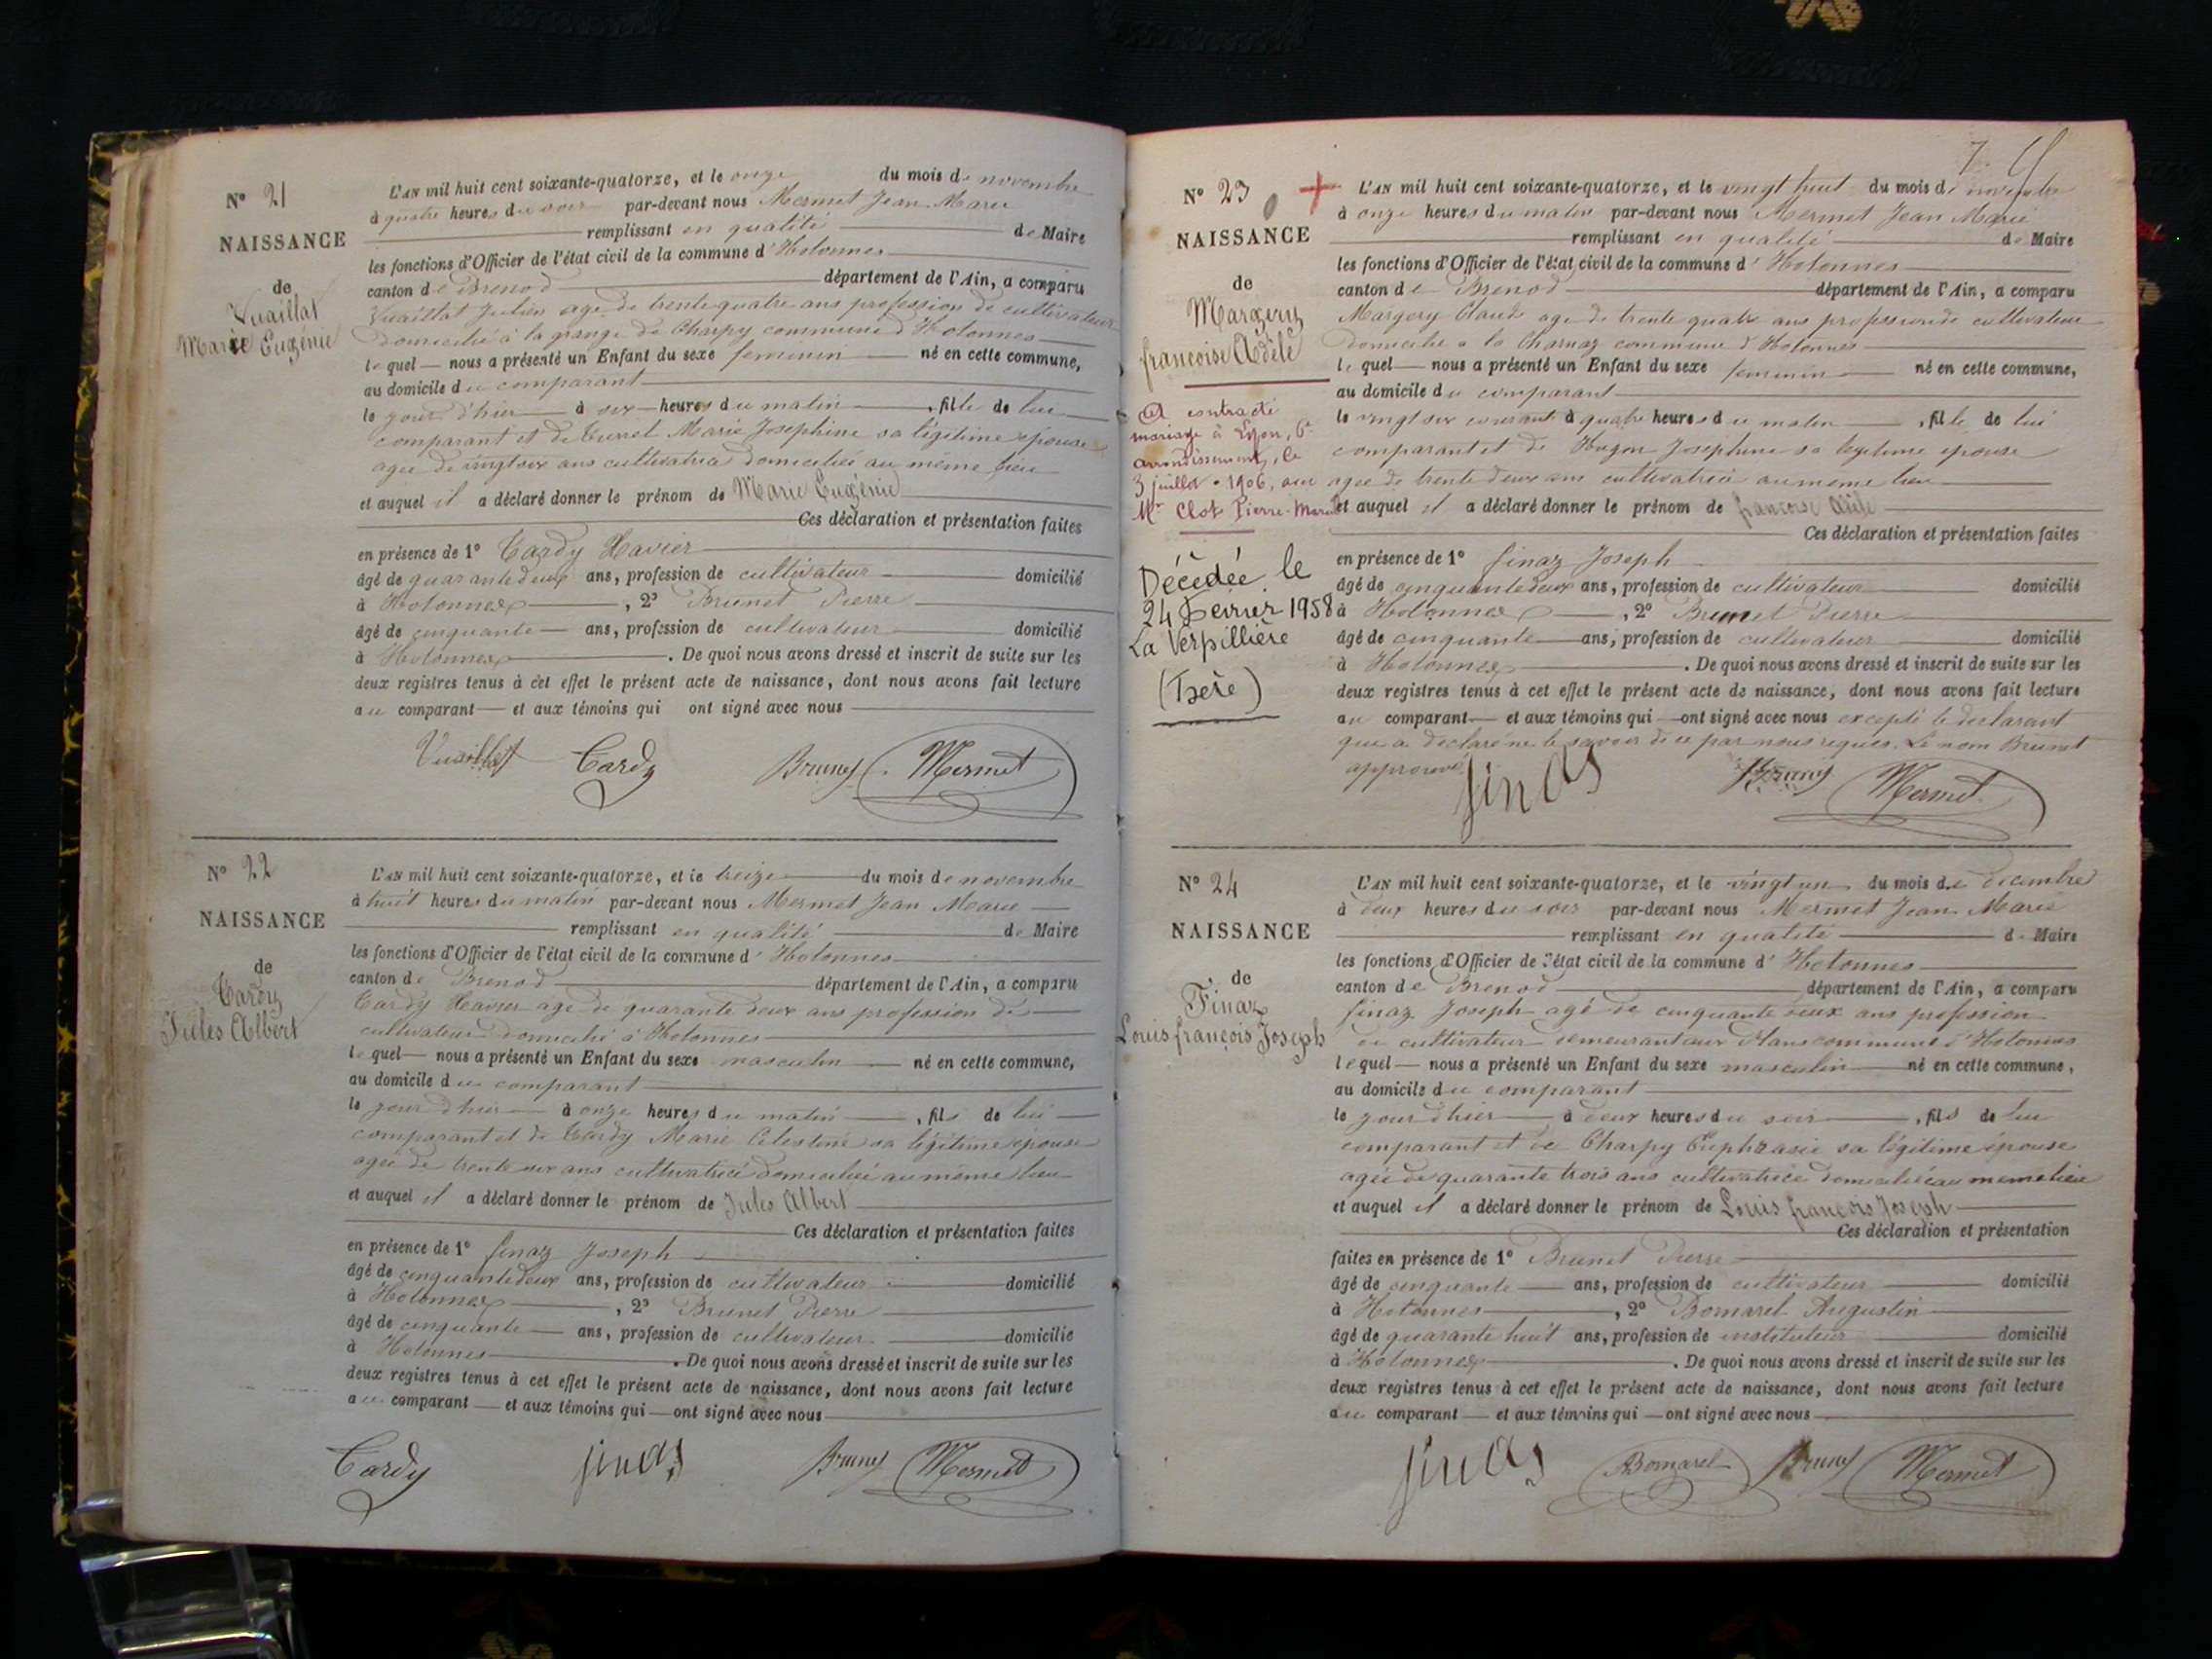 N° 21
NAISSANCE
de
Vuaillat
Marie Eugénie
L'AN mil huit cent soixante-quatorze, et le onze du mois de novembre
à quatre heures du soir par-devant nous Mermet Jean Marie
remplissant en qualité de Maire
les fonctions d'Officier de l'état civil de la commune d'Hotonnes
canton de Brenod département de l'Ain, a comparu
Vuaillat Julien age de trente quatre ans profession de cultivateur
domicilié à la grange de Charpy commune d'Hotonnes
lequel nous a présenté un Enfant du sexe feminin né en cette commune,
au domicile du comparant
le jour d'hier à six heures du matin, fille de lui
comparant et de Marie Josephine sa légitime épouse
agée de vingt six ans cultivatrice domiciliée au même lieu
et auquel il a déclaré donner le prénom de Marie Eugénie
Ces déclaration et présentation faites
en présence de 1° Tardy Xavier
âgé de quarante deux ans, profession de cultivateur domicilié
à Hotonnes, 2° Brunet Pierre
âgé de cinquante ans, profession de cultivateur domicilié
à Hotonnes. De quoi nous avons dressé et inscrit de suite sur les
deux registres tenus à cet effet le présent acte de naissance, dont nous avons fait lecture
au comparant et aux témoins qui ont signé avec nous
Vuaillat Tardy Brunet Mermet
N° 22
NAISSANCE
de
Tardy
Jules Albert
L'AN mil huit cent soixante-quatorze, et le treize du mois de novembre
à huit heures du matin par-devant nous Mermet Jean Marie
remplissant en qualité de Maire
les fonctions d'Officier de l'état civil de la commune d'Hotonnes
canton de Brenod département de l'Ain, a comparu
Tardy Xavier age de quarante deux ans profession de
cultivateur domicilié à Hotonnes
lequel nous a présenté un Enfant du sexe masculin né en cette commune,
au domicile du comparant
le jour d'hier à onze heures du matin, fils de lui
comparant et de Tardy Marie Celestine sa légitime épouse
agée de trente six ans cultivatrice domiciliée au même lieu
et auquel il a déclaré donner le prénom de Jules Albert
Ces déclaration et présentation faites
en présence de 1° finaz Joseph
âgé de cinquante deux ans, profession de cultivateur domicilié
à Hotonnes, 2° Brunet Pierre
âgé de cinquante ans, profession de cultivateur domicilié
à Hotonnes. De quoi nous avons dressé et inscrit de suite sur les
deux registres tenus à cet effet le présent acte de naissance, dont nous avons fait lecture
au comparant et aux témoins qui ont signé avec nous
Tardy finas Brunet Mermet
7.
N° 23
NAISSANCE
de
Margery
françoise Adèle
A contracté
mariage à Lyon, 6e
arrondissement, le
3 juillet 1906, avec
Mr Clot Pierre-Marie
Décédée le
24 Février 1958
La Verpillière
(Isère)
L'AN mil huit cent soixante-quatorze, et le vingt huit du mois de novembre
à onze heures du matin par-devant nous Mermet Jean Marie
remplissant en qualité de Maire
les fonctions d'Officier de l'état civil de la commune d'Hotonnes
canton de Brenod département de l'Ain, a comparu
Margery Claude age de trente quatre ans profession de cultivateur
domicilié a la Charnaz commune d'Hotonnes
lequel nous a présenté un Enfant du sexe feminin né en cette commune,
au domicile du comparant
le vingt six courant à quatre heures du matin, fille de lui
comparant et de Hugon Josephine sa légitime épouse
agée de trente deux ans cultivatrice au meme lieu
et auquel il a déclaré donner le prénom de francoise Adèle
Ces déclaration et présentation faites
en présence de 1° finaz Joseph
âgé de cinquante deux ans, profession de cultivateur domicilié
à Hotonnes, 2° Brunet Pierre
âgé de cinquante ans, profession de cultivateur domicilié
à Hotonnes. De quoi nous avons dressé et inscrit de suite sur les
deux registres tenus à cet effet le présent acte de naissance, dont nous avons fait lecture
au comparant et aux témoins qui ont signé avec nous excepté le declarant
qui a declaré ne le savoir de ce par nous requis. Le nom Brunet
approuvé
finas Brunet Mermet
N° 24
NAISSANCE
de
Finaz
Louis françois Joseph
L'AN mil huit cent soixante-quatorze, et le vingt un du mois de decembre
à deux heures du soir par-devant nous Mermet Jean Marie
remplissant en qualité de Maire
les fonctions d'Officier de l'état civil de la commune d'Hotonnes
canton de Brenod département de l'Ain, a comparu
finaz Joseph agé de cinquante deux ans profession
de cultivateur demeurant aux Plans commune d'Hotonnes
lequel nous a présenté un Enfant du sexe masculin né en cette commune,
au domicile du comparant
le jour d'hier à deux heures du soir, fils de lui
comparant et de Charpy Euphrasie sa légitime épouse
agée de quarante trois ans cultivatrice domiciliée au meme lieu
et auquel il a déclaré donner le prénom de Louis françois Joseph
Ces déclaration et présentation
faites en présence de 1° Brunet Pierre
âgé de cinquante ans, profession de cultivateur domicilié
à Hotonnes, 2° Bomarel Augustin
âgé de quarante huit ans, profession de instituteur domicilié
à Hotonnes. De quoi nous avons dressé et inscrit de suite sur les
deux registres tenus à cet effet le présent acte de naissance, dont nous avons fait lecture
au comparant et aux témoins qui ont signé avec nous
finas Bomarel Brunet Mermet